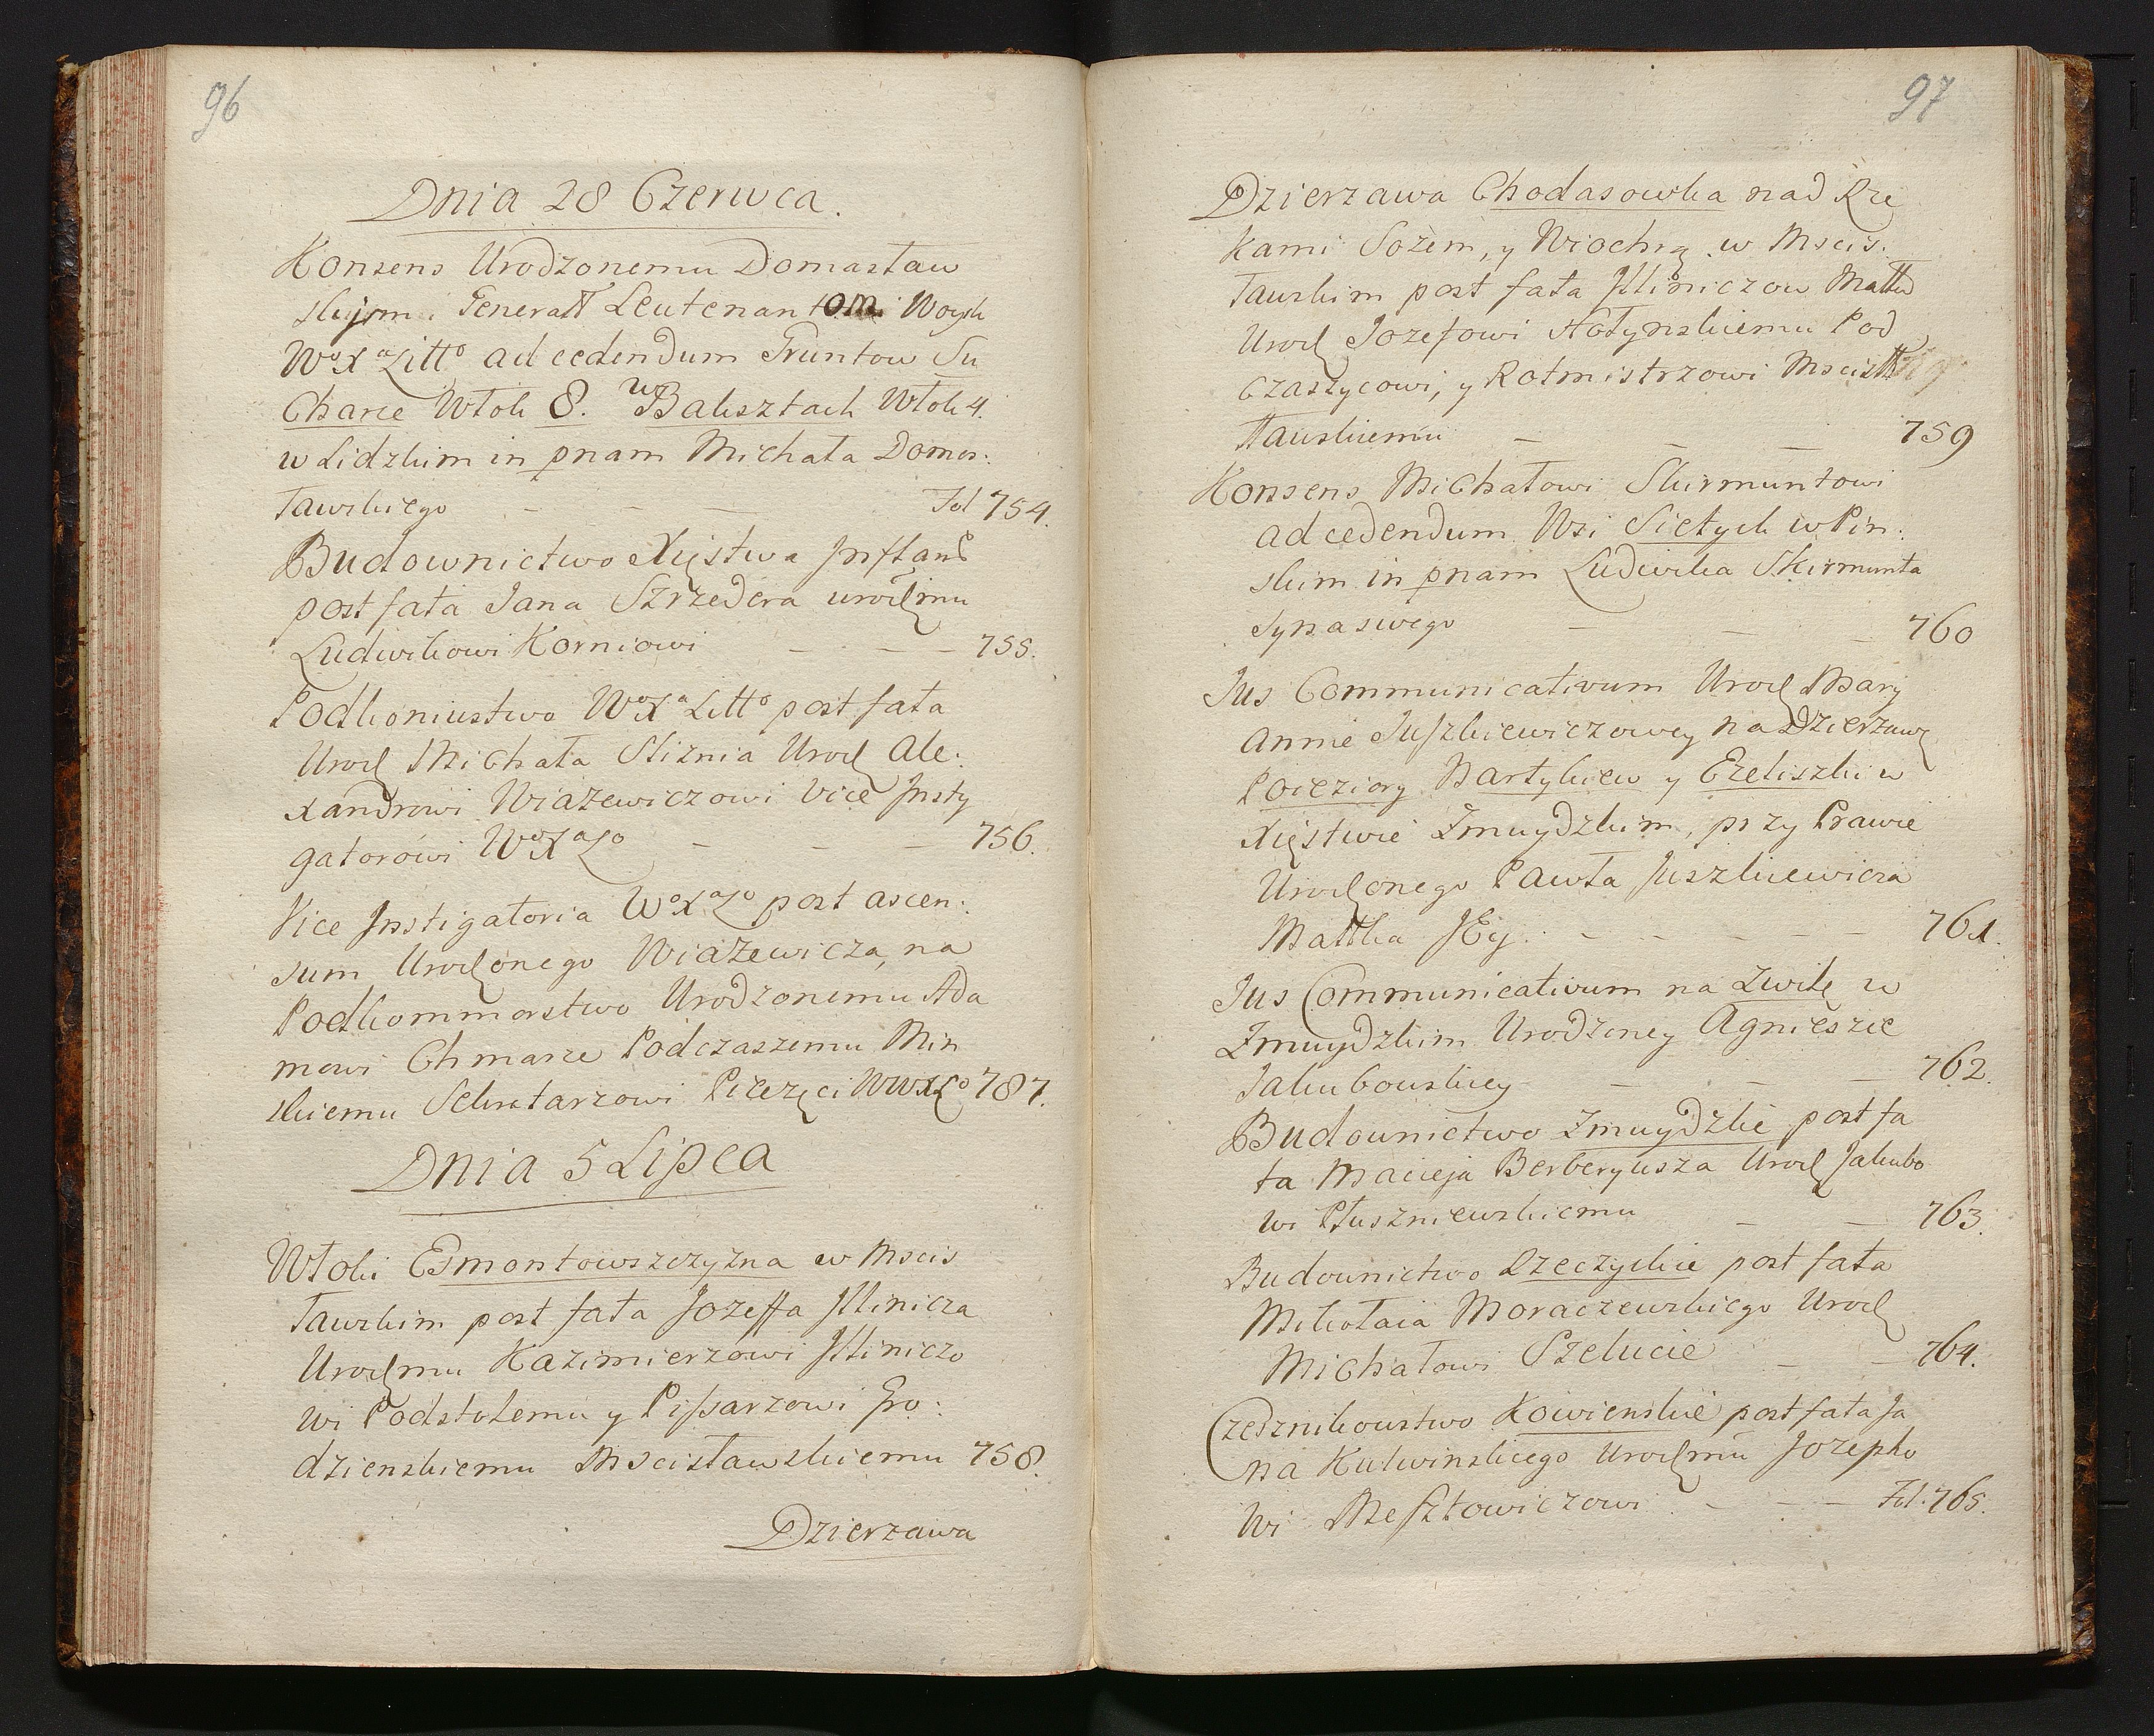 96
Dnia 28 Czerwca.
Konsens Urodzonemu Domasław
skiemu Generałł Leutenantomi Woysk
WoXaLitto ad cedendum Gruntow Su
Charce Włok 8. w Baksztach Włok 4.
w Lidzkim in pnam Michała Domos:
ławskiego — — — Fol 754.
Budownictwo Xięstwa Inflant
post fata Jana Szrzedera urodzmu
Ludwikowi Korniowi — — — 755.
Podkoniustwo WoXaLitto post fata
Urodz Michała Sliznia Urodz Ale:
xandrowi Wiazewiczowi Vice Insty
gatorowi WoXaLo — — — 756.
Vice Instigatoria WoXaLo post ascen:
sum Urodzonego Wiazewicza, na
Podkommorstwo Urodzonemu Ada
mowi Chmarze Podczaszemu Min
skiemu Sekretarzowi Pieczęci WWXLo 787.
Dnia 5 Lipca
Włoki Eysmontowszczyzna w Mscis
ławskim post fata Jozeffa Illinicza
Urodzmu Kazimierzowi Illiniczo
wi Podstolemu y Pissarzowi Gro:
dzienskiemu Mscisławskiemu 758.
Dzierzawa
97
Dzierzawa Chodasowka nad Rze
kami Sożem, y Wiochrą w Mscis:
ławskim post fata Illiniczow Małłw
Urodz Jozefowi Hołynskiemu Pod
Czaszycowi, y Rotmistrzowi Mscisłł
łławskiemu — — — 759
Konsens Michałowi Skirmuntowi
ad cedendum Wsi Sietych w Pin:
skim in pnam Ludwika Skirmunta
Syna swego — — — 760
Jus Communicativum Urodz Mary
annie Juszkiewiczowey na Dzierzawę
Poieziory Nartykiew y Ezeliszki w
Xięstwie Zmuydzkim, przy Prawie
Urodzonego Pawła Juszkiewicza
Małłka JEy. — — — — — 761.
Jus Communicativum na Zwilę w
Zmuydzkim Urodzoney Agnieszce
Jakubowskiey — — — 762.
Budownictwo Zmuydzkie post fa
ta Macieja Berberyusza Urodz Jakubo
wi Płuszniewskiemu — — 763.
Budownictwo Rzeczyckie post fata
Mikołaia Moraczewskiego Urodz
Michałowi Szelucie — — 764.
Czesznikowstwo Kowienskie post fata Ja
na Kulwinskiego Urodzmu Jozepho
wi Mesztowiczowi — — — Fol. 765.